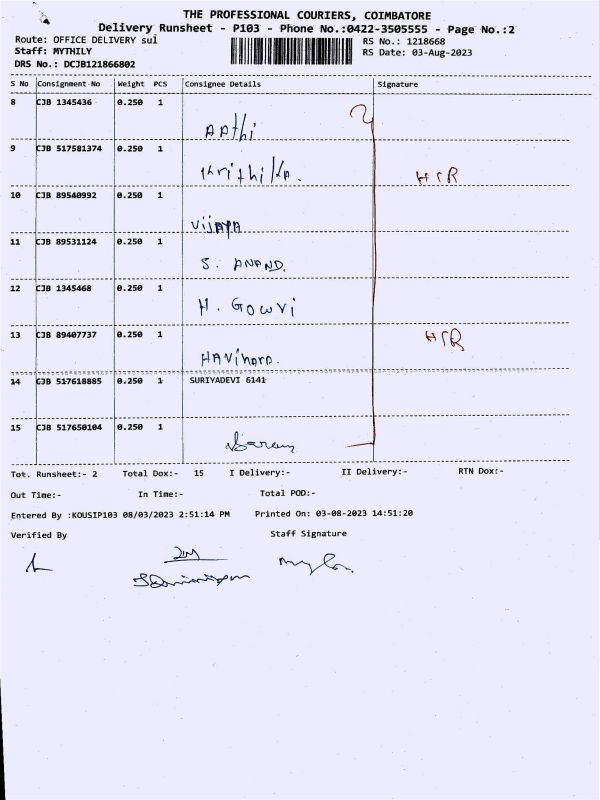 THE PROFESSIONAL COURIERS, COIMBATORE
Delivery Runsheet - P103 - Phone No.:0422-3505555 - Page No.:2
Route: OFFICE DELIVERY sul
RS No.: 1218668
Staff: MYTHILY
RS Date: 03-Aug-2023
DRS No.: DCJB121866802
S No Consignment No Weight PCS Consignee Details Signature
8 CJB 1345436 0.250 1
AAthi
9 CJB 517581374 0.250 1
Krithika.
HTR
10 CJB 89540992 0.250 1
VijAYA
11 CJB 89531124 0.250 1
S. ANAND.
12 CJB 1345468 0.250 1
H. Gowri
13 CJB 89407737 0.250 1
HTR
14 CJB 517618885 0.250 1 SURIYADEVI 6141
15 CJB 517650104 0.250 1
Tot. Runsheet:- 2 Total Dox:- 15 I Delivery:- II Delivery:- RTN Dox:-
Out Time:- In Time:- Total POD:-
Entered By :KOUSIP103 08/03/2023 2:51:14 PM Printed On: 03-08-2023 14:51:20
Verified By Staff Signature